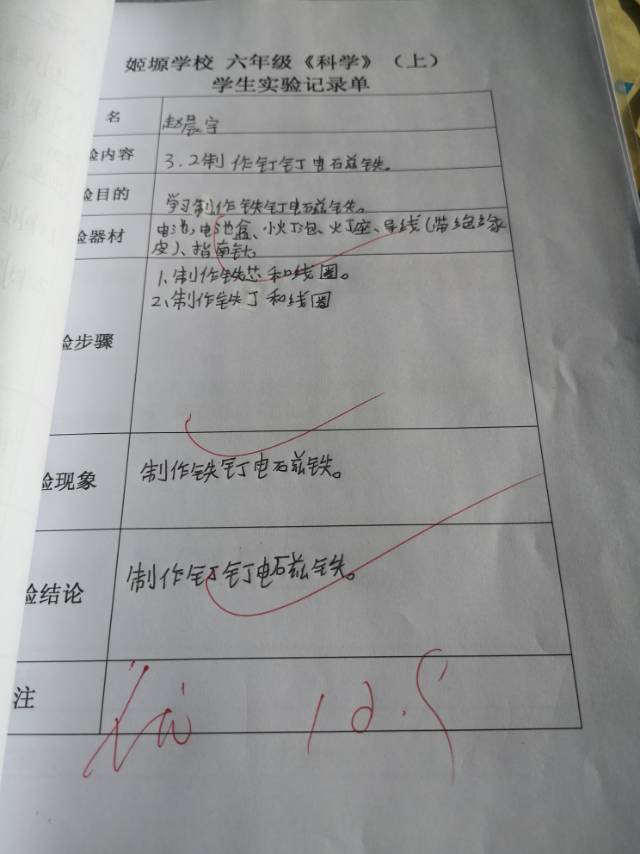 姬塬学校 六年级《科学》(上)
学生实验记录单
名 赵晨宇
验内容 3.2制作钉钉电石兹铁。
验目的 学习制作铁钉电石兹铁。
验器材 电池,电池盒、小火丁泡、火丁座、导线(带绝缘
皮)、指南针
验步骤 1、制作铁芯和线圈。
2、制作铁丁和线圈
验现象 制作铁钉电石兹铁。
验结论 制作钉钉电石兹铁。
注 12.5